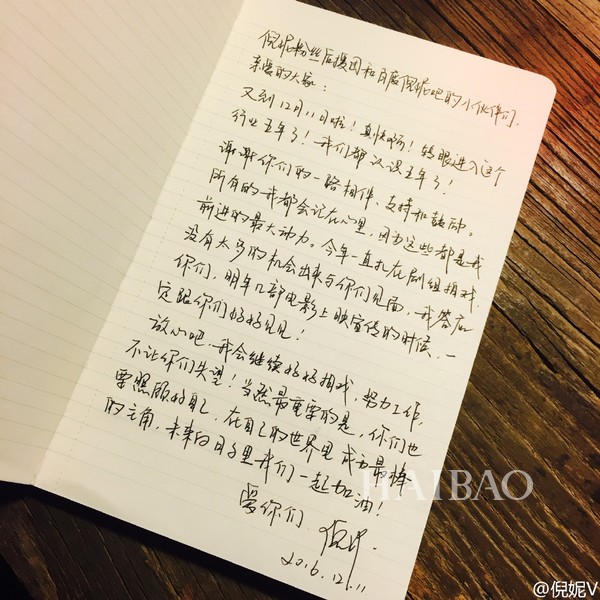 倪妮粉丝后援团和百度倪妮吧的小伙伴们,
亲爱的大家:
又到12月11日啦!真快呀!转眼进入这个
行业五年了!我们都认识五年了!
谢谢你们的一路相伴、支持和鼓励。
所有的我都会记在心里,因为这些都是我
前进的最大动力。今年一直扎在剧组拍戏,
没有太多的机会出来与你们见面,我答应
你们,明年几部电影上映宣传的时候,一
定跟你们好好见见!
放心吧,我会继续好好拍戏,努力工作,
不让你们失望!当然最重要的是,你们也
要照顾好自己,在自己的世界里成为最棒
的主角,未来的日子里我们一起加油!
爱你们 倪妮.
2016.12.11
HAIBAO
@倪妮V